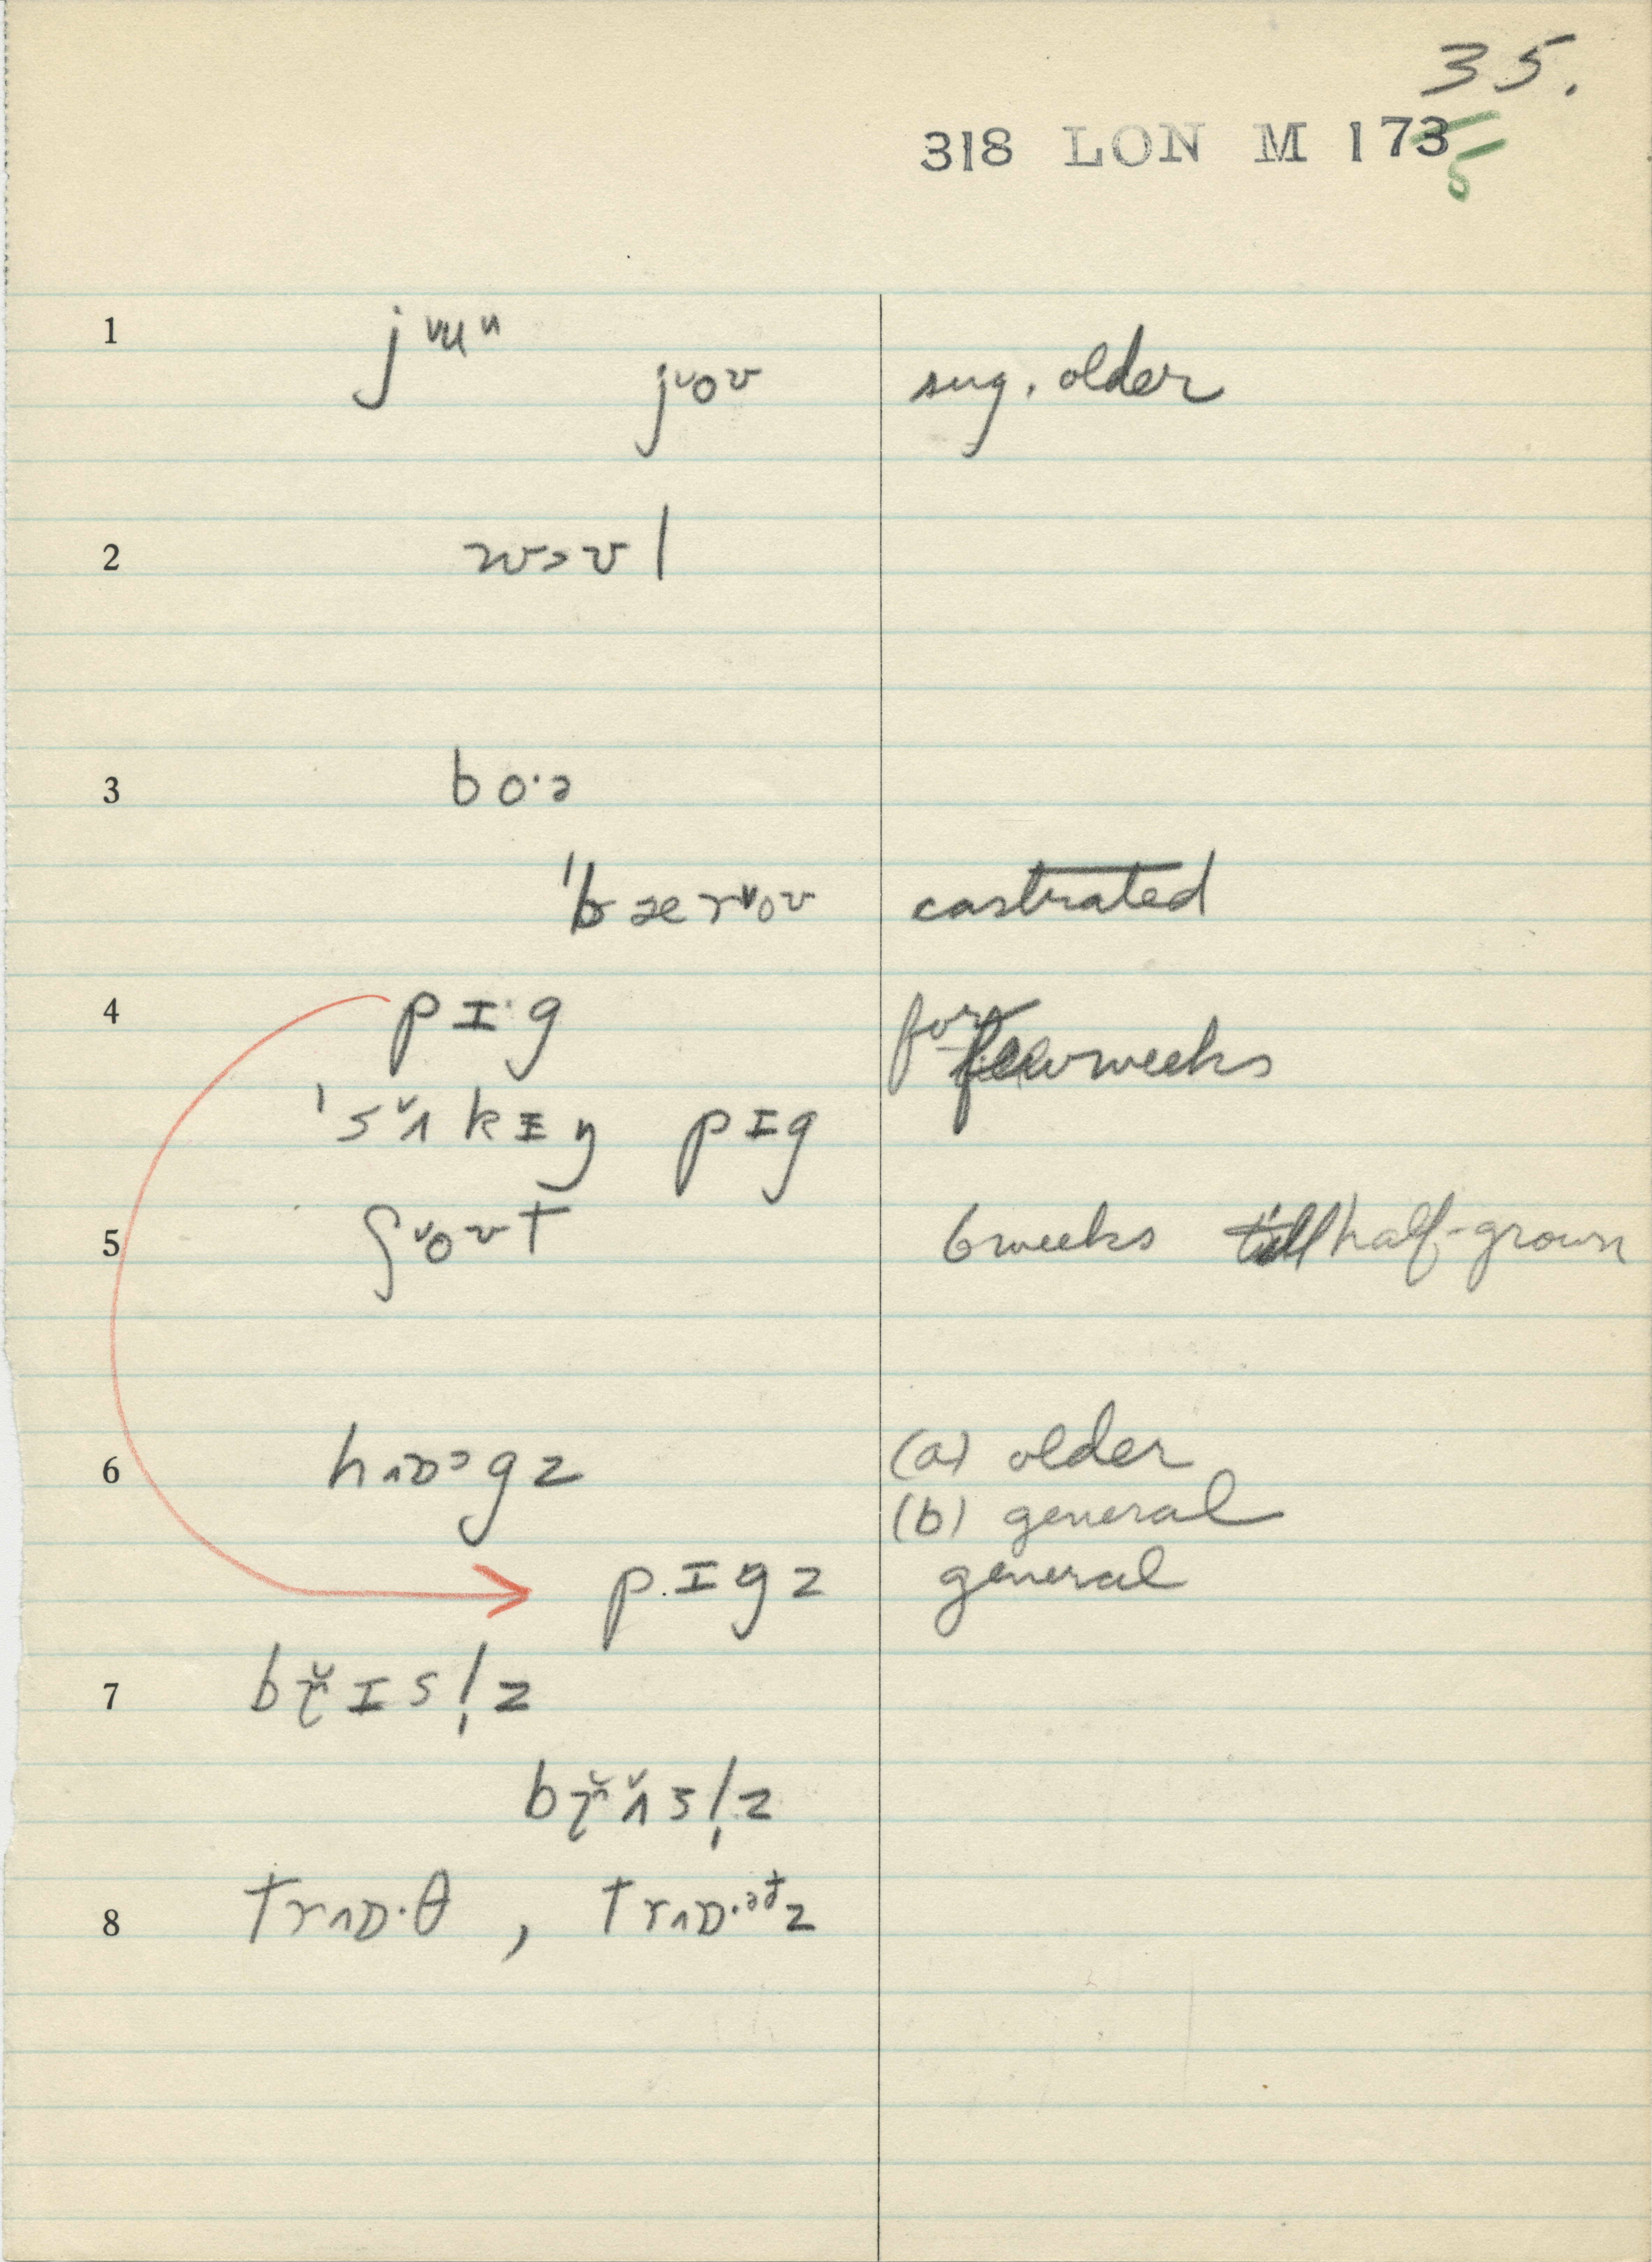 35.
318 LON M 173
5
1 jᵛɯᶸ
jᵛoʊ sug. older
2 wɔʊl
3 bo·ə
ˈbærᵛoʊ castrated
4 pɪ·g for few weeks
ˈsʌ̆kɪŋ pɪg
5 ʃᵛoʊt 6 weeks till half-grown
6 hʌɒɔgz (a) older
(b) general
pɪgz general
7 bɪsl̩z
bʌ̆sl̩z
8 trʌɒ·θ , trʌɒ·ətz